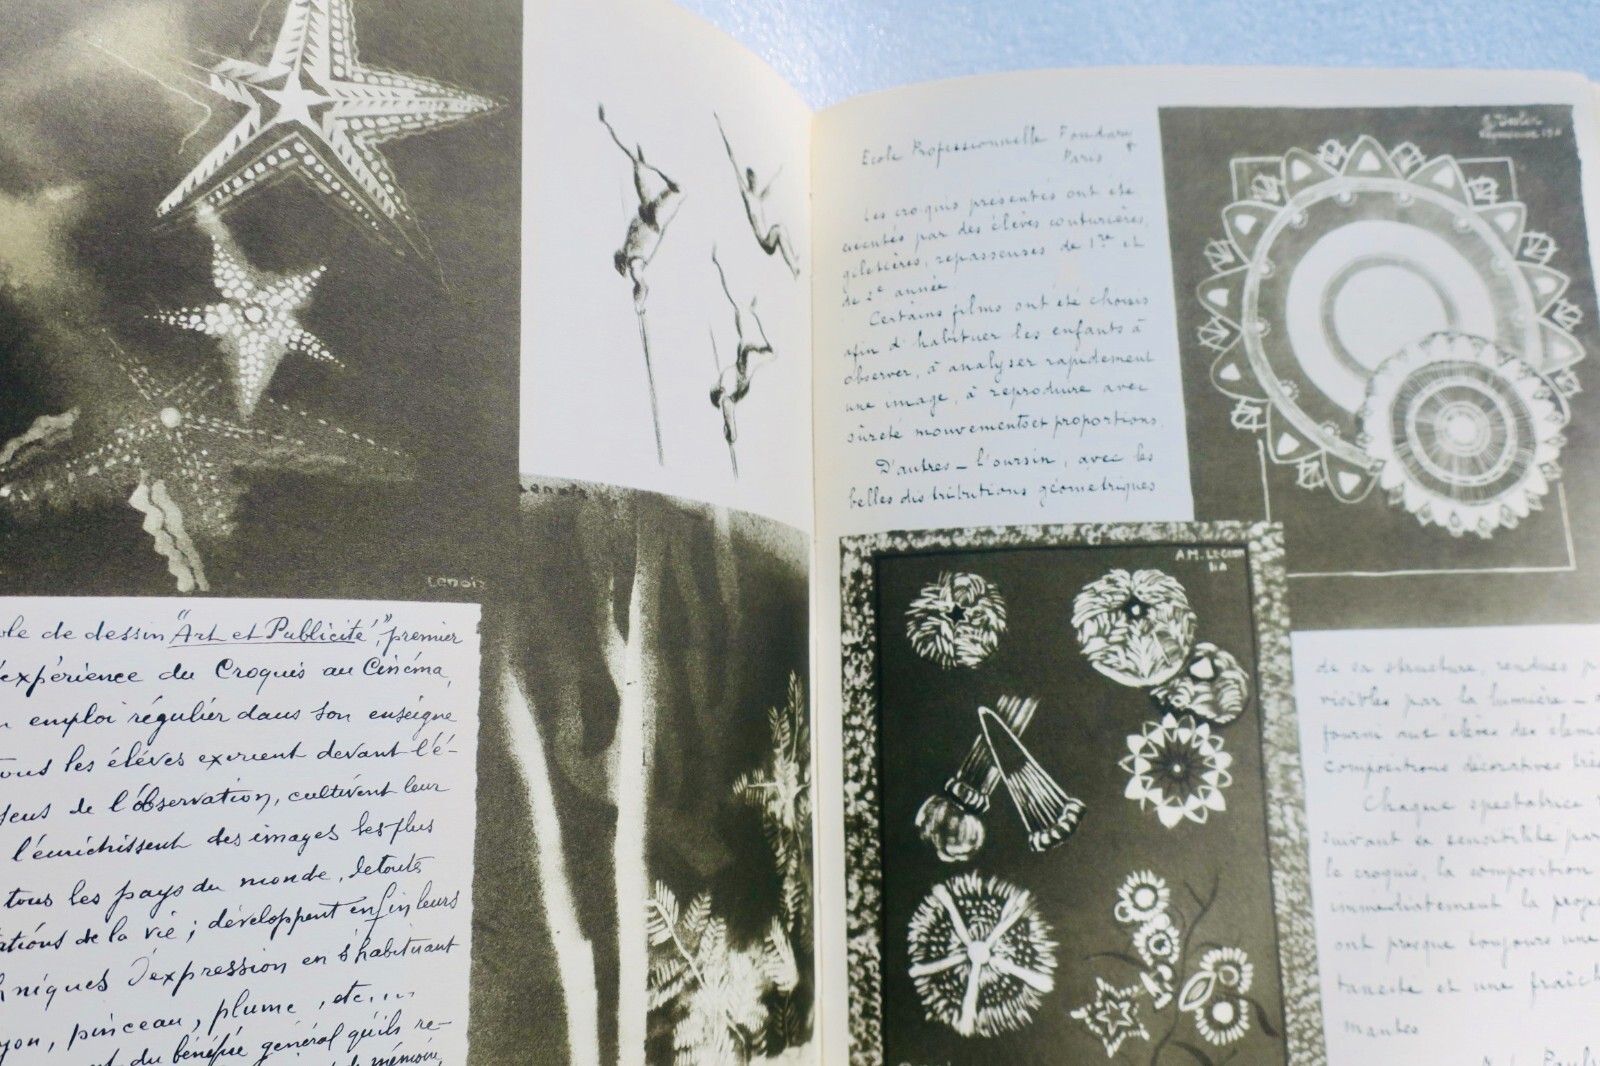 Lenoir
Lenoir
de dessin "Art et Publicité", premier
expérience du Croquis au Cinéma,
emploi régulier dans son enseigne
tous les élèves exercent devant l'é-
sens de l'observation, cultivent leur
l'enrichissent des images les plus
tous les pays du monde, de toute
de la vie ; développent enfin leurs
d'expression en s'habituant
pinceau, plume, etc....
du bénéfice général qu'ils re-
mémoire,
Ecole Professionnelle Fondary
Paris
Les croquis présentés ont été
exécutés par des élèves couturières,
giletières, repasseuses de 1re et
de 2e année.
Certains films ont été choisis
afin d'habituer les enfants à
observer, à analyser rapidement
une image, à reproduire avec
sûreté mouvements et proportions.
D'autres — l'oursin, avec les
belles distributions géométriques
A.M.
de sa structure, rendues
visibles par la lumière —
fourni aux élèves des
compositions décoratives
Chaque spectatrice
suivant sa sensibilité
le croquis, la composition
immédiatement la
ont presque toujours une
et une